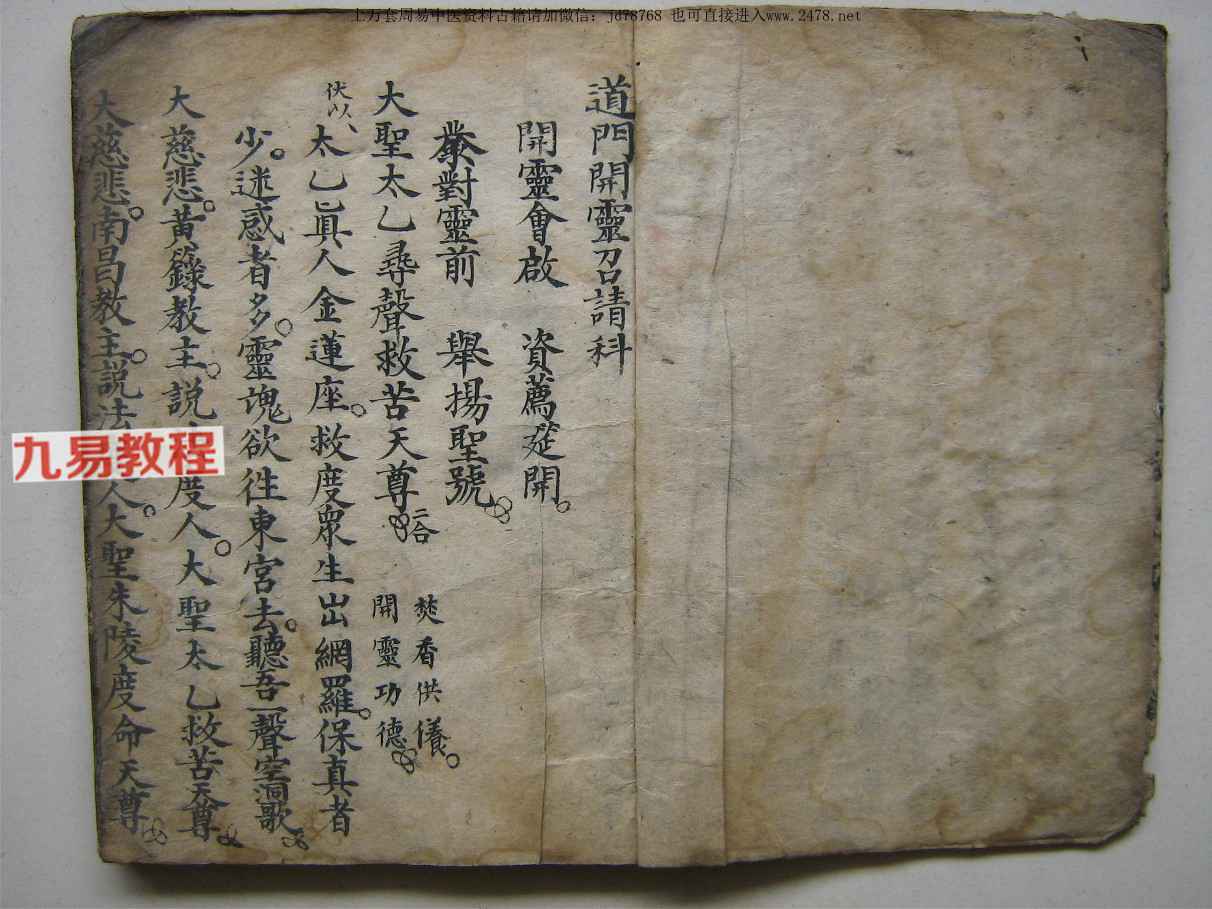 上万套周易中医资料古籍请加微信：jd78768 也可直接进入www.2478.net
道門開靈召請科
開靈會啟　資薦筵開。
對靈前　舉揚聖號。
大聖太乙尋聲救苦天尊 二合 焚香供養。開靈功德
伏以、太乙眞人金蓮座。救度衆生出網羅。保真者
少。迷惑者多。靈魂欲徃東宮去。聽吾一聲空洞歌
大慈悲。黃籙教主。説度人。大聖太乙救苦天尊
大慈悲。南昌教主。説法人。大聖朱陵度命天尊
九易教程